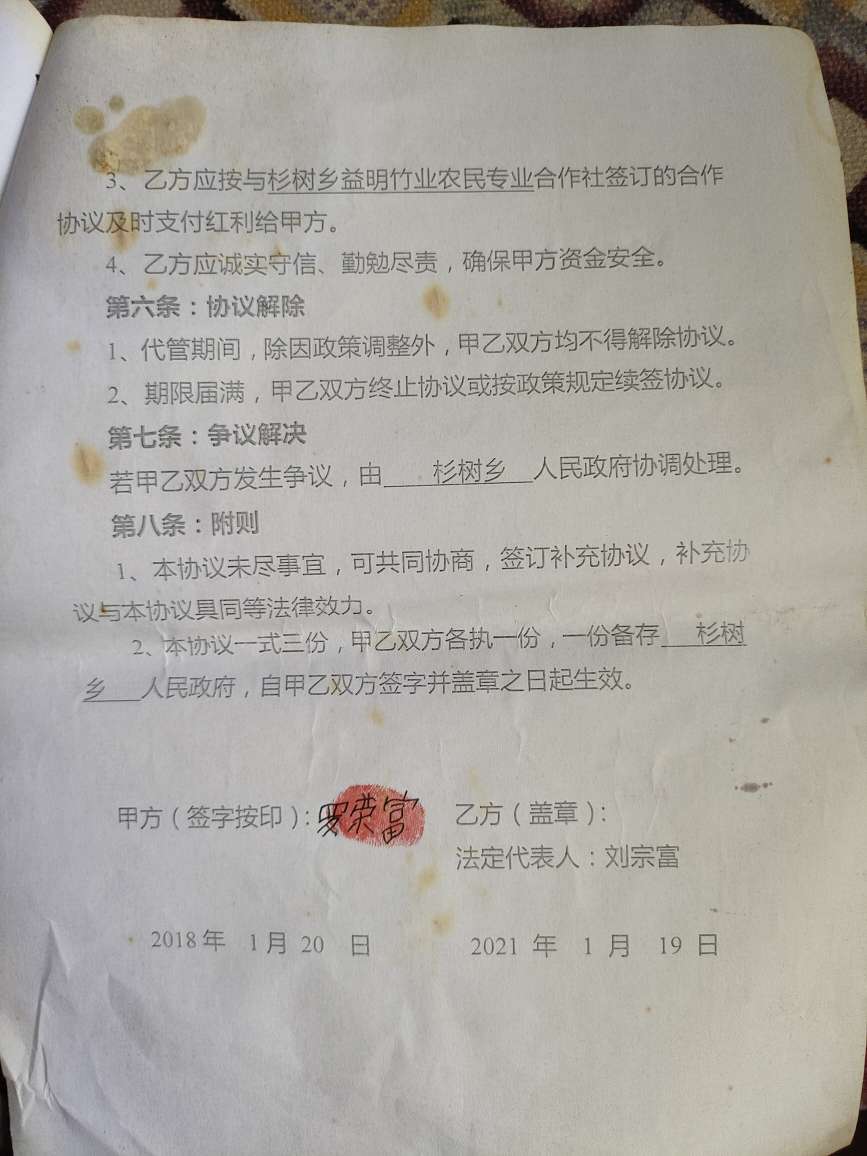 3、乙方应按与杉树乡益明竹业农民专业合作社签订的合作
协议及时支付红利给甲方。
4、乙方应诚实守信、勤勉尽责，确保甲方资金安全。
第六条：协议解除
1、代管期间，除因政策调整外，甲乙双方均不得解除协议。
2、期限届满，甲乙双方终止协议或按政策规定续签协议。
第七条：争议解决
若甲乙双方发生争议，由 杉树乡 人民政府协调处理。
第八条：附则
1、本协议未尽事宜，可共同协商，签订补充协议，补充协
议与本协议具同等法律效力。
2、本协议一式三份，甲乙双方各执一份，一份备存 杉树
乡 人民政府，自甲乙双方签字并盖章之日起生效。
甲方（签字按印）：罗荣富 乙方（盖章）：
法定代表人：刘宗富
2018年 1月 20 日 2021 年 1 月 19 日